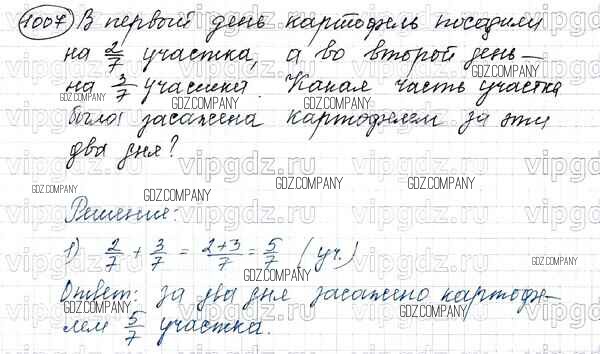 1007 В первый день картофель посадили
на 2/7 участка, а во второй день –
на 3/7 участка. Какая часть участка
была засажена картофелем за эти
два дня?
Решение:
1) 2/7 + 3/7 = 2+3/7 = 5/7 (уч.)
Ответ: за два дня засажено картофе-
лем 5/7 участка.
vipgdz.ru
GDZ.COMPANY